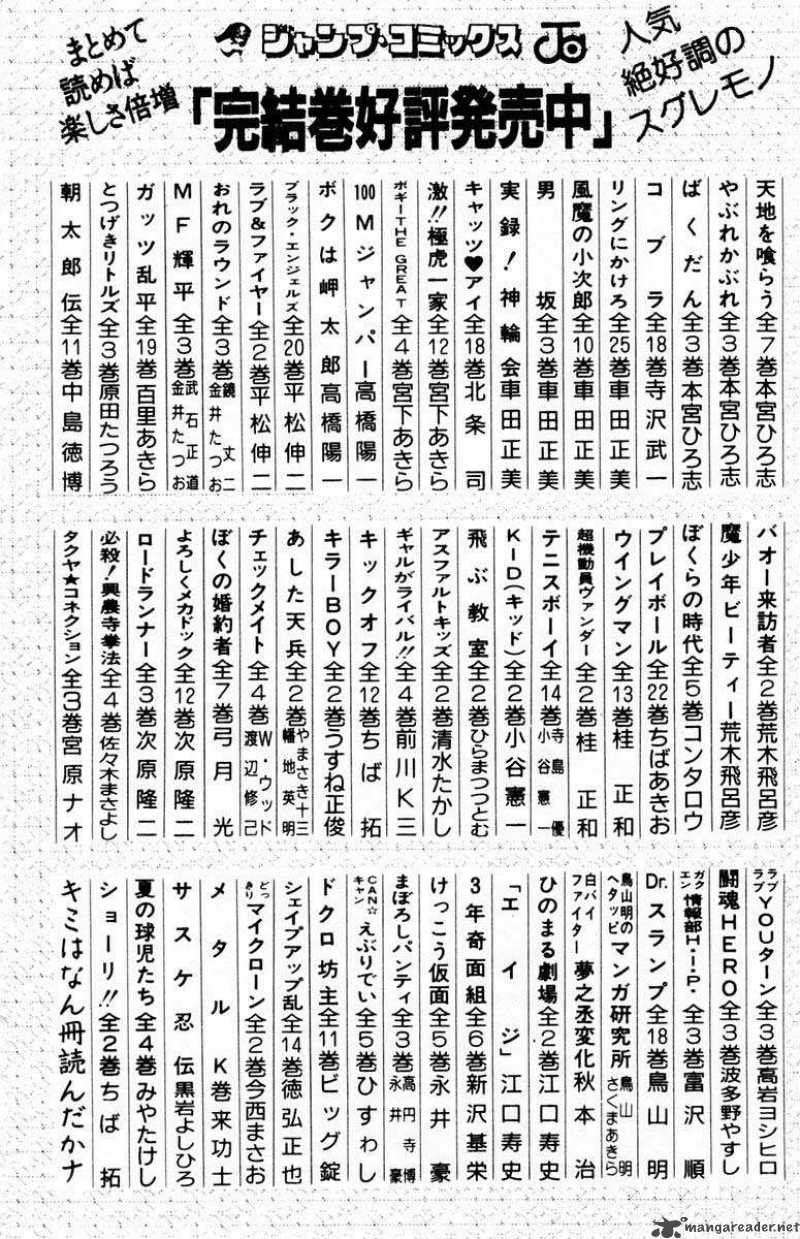 まとめて
読めば
楽しさ倍増
ジャンプ・コミックス
人気
絶好調の
スグレモノ
「完結巻好評発売中」
天地を喰らう全7巻本宮ひろ志
やぶれかぶれ全3巻本宮ひろ志
ばくだん全3巻本宮ひろ志
コブラ全18巻寺沢武一
リングにかけろ全25巻車田正美
風魔の小次郎全10巻車田正美
男坂全3巻車田正美
実録!神輪会車田正美
キャッツ♥アイ全18巻北条司
激!!極虎一家全12巻宮下あきら
ボギーTHE GREAT全4巻宮下あきら
100Mジャンパー高橋陽一
ボクは岬太郎高橋陽一
ブラック・エンジェルズ全20巻平松伸二
ラブ&ファイヤー全2巻平松伸二
おれのラウンド全3巻鏡丈二 金井たつお
MF輝平全3巻武石正道 金井たつお
ガッツ乱平全19巻百里あきら
とつげきリトルズ全3巻原田たつろう
朝太郎伝全11巻中島徳博
バオー来訪者全2巻荒木飛呂彦
魔少年ビーティー荒木飛呂彦
ぼくらの時代全5巻コンタロウ
プレイボール全22巻ちばあきお
ウイングマン全13巻桂正和
超機動員ヴァンダー全2巻桂正和
テニスボーイ全14巻寺島優 小谷憲一
KID(キッド)全2巻小谷憲一
飛ぶ教室全2巻ひらまつつとむ
アスファルトキッズ全2巻清水たかし
ギャルがライバル!!全4巻前川K三
キックオフ全12巻ちば拓
キラーBOY全2巻うすね正俊
あした天兵全2巻やまさき十三 幡地英明
チェックメイト全4巻W・ウッド 渡辺修己
ぼくの婚約者全7巻弓月光
よろしくメカドック全12巻次原隆二
ロードランナー全3巻次原隆二
必殺!興農寺拳法全4巻佐々木まさよし
タクヤ★コネクション全3巻宮原ナオ
ラブラブYOUターン全3巻高岩ヨシヒロ
闘魂HERO全3巻波多野やすし
ガクエン情報部H・I・P・全3巻富沢順
Dr.スランプ全18巻鳥山明
鳥山明のヘタッピマンガ研究所鳥山明 さくまあきら
白バイファイター夢之丞変化秋本治
ひのまる劇場全2巻江口寿史
「エイジ」江口寿史
3年奇面組全6巻新沢基栄
けっこう仮面全5巻永井豪
まぼろしパンティ全3巻高円寺博 永井豪
CAN☆キャンえぶりでい全5巻ひすわし
ドクロ坊主全11巻ビッグ錠
シェイプアップ乱全14巻徳弘正也
どっきりマイクローン全2巻今西まさお
メタルK巻来功士
サスケ忍伝黒岩よしひろ
夏の球児たち全4巻みやたけし
ショーリ!!全2巻ちば拓
キミはなん冊読んだかナ
mangareader.net